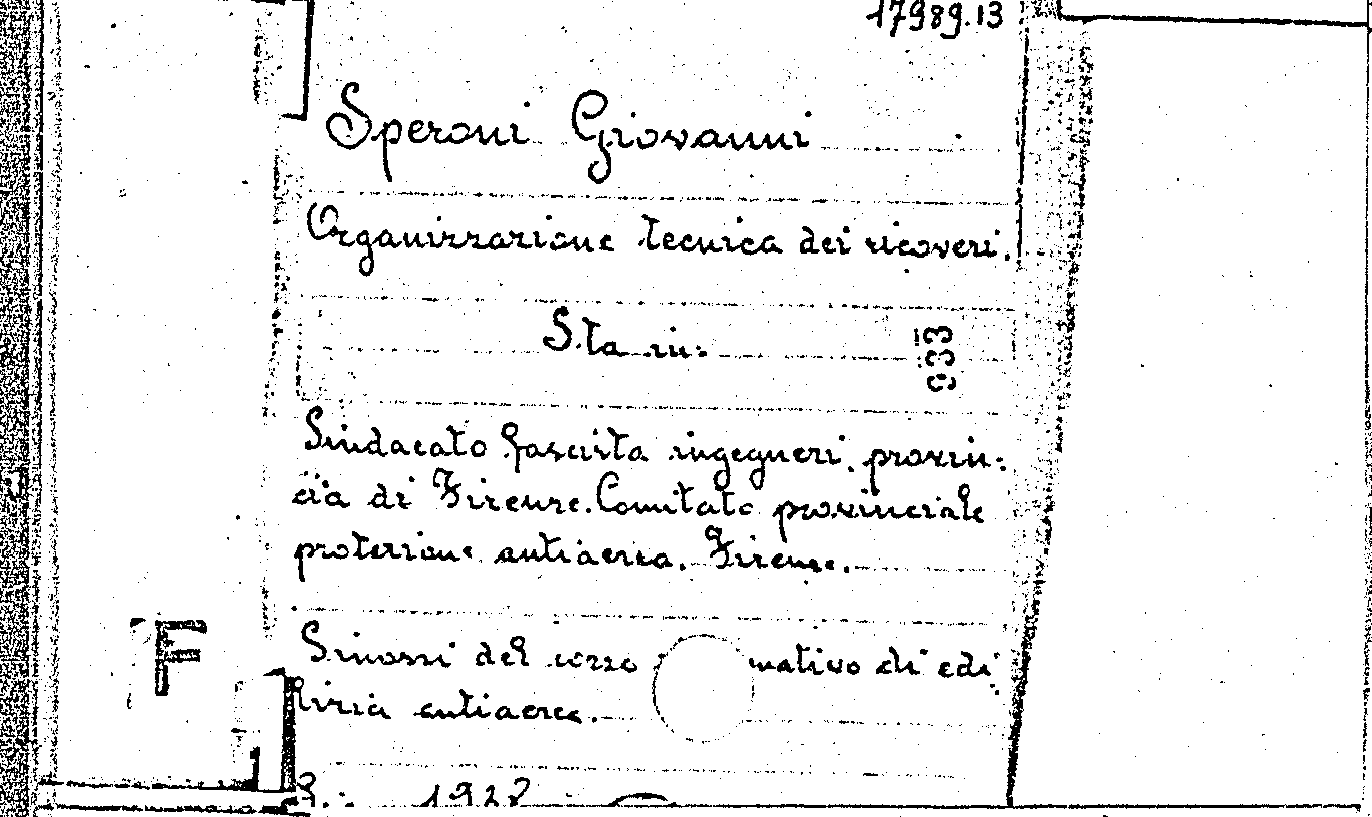 17989.13
Speroni Giovanni
Organizzazione tecnica dei ricoveri.
Sta in:
933
Sindacato fascista ingegneri, provin-
cia di Firenze. Comitato provinciale
protezione antiaerea. Firenze.
F
Sinossi del corso mativo di edi-
lizia antiaerea.